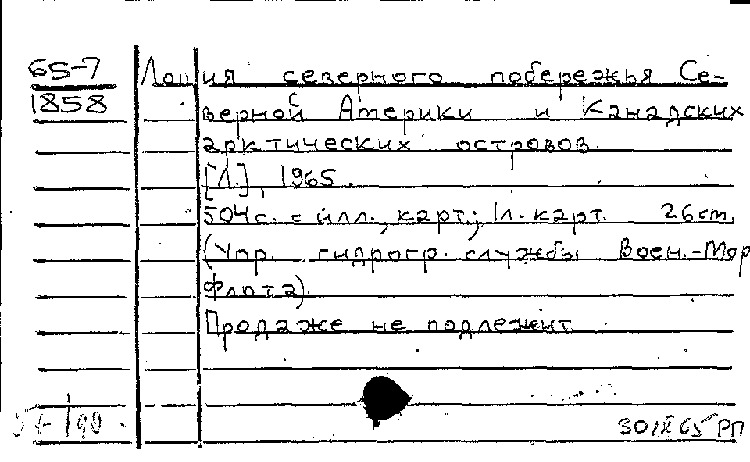 65-7
1858
Лоция северного побережья Се-
верной Америки и Канадских
арктических островов.
[Л.], 1965.
504 с. с илл., карт.; 1 л. карт. 26 cm.
(Упр. гидрогр. службы Воен.-Мор
флота).
Продаже не подлежит
65 РП